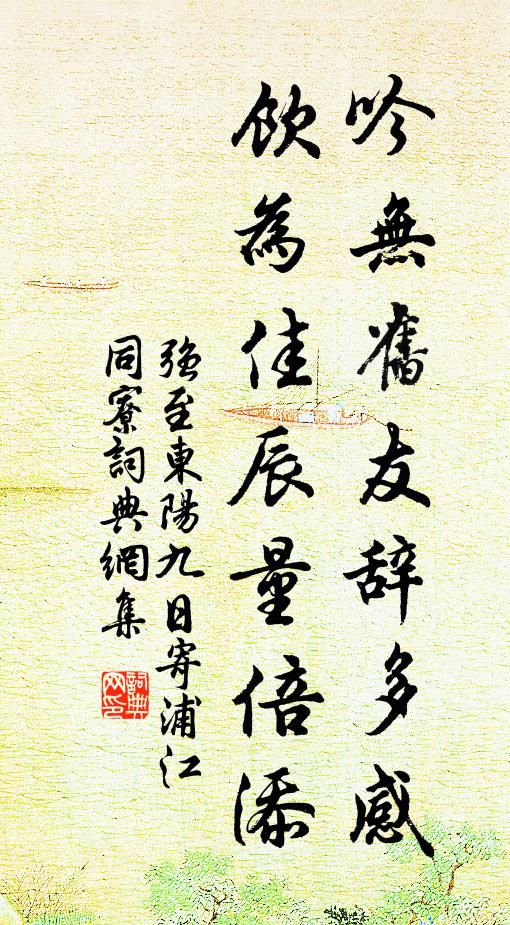 吟無舊友辞多感
飲為佳辰量倍添
强至東陽九日寄浦江
同寮詞典網集
詞典
网印